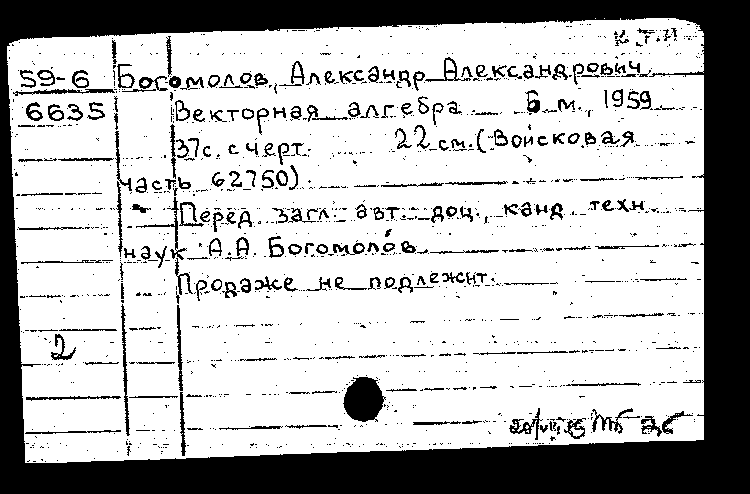 59-6 Богомолов, Александр Александрович.
6635 Векторная алгебра. Б. м., 1959
37с. с черт. 22 см. (Войсковая
часть 62750).
Перед загл. авт.: доц., канд. техн.
наук А.А. Богомолов.
Продаже не подлежит.
2